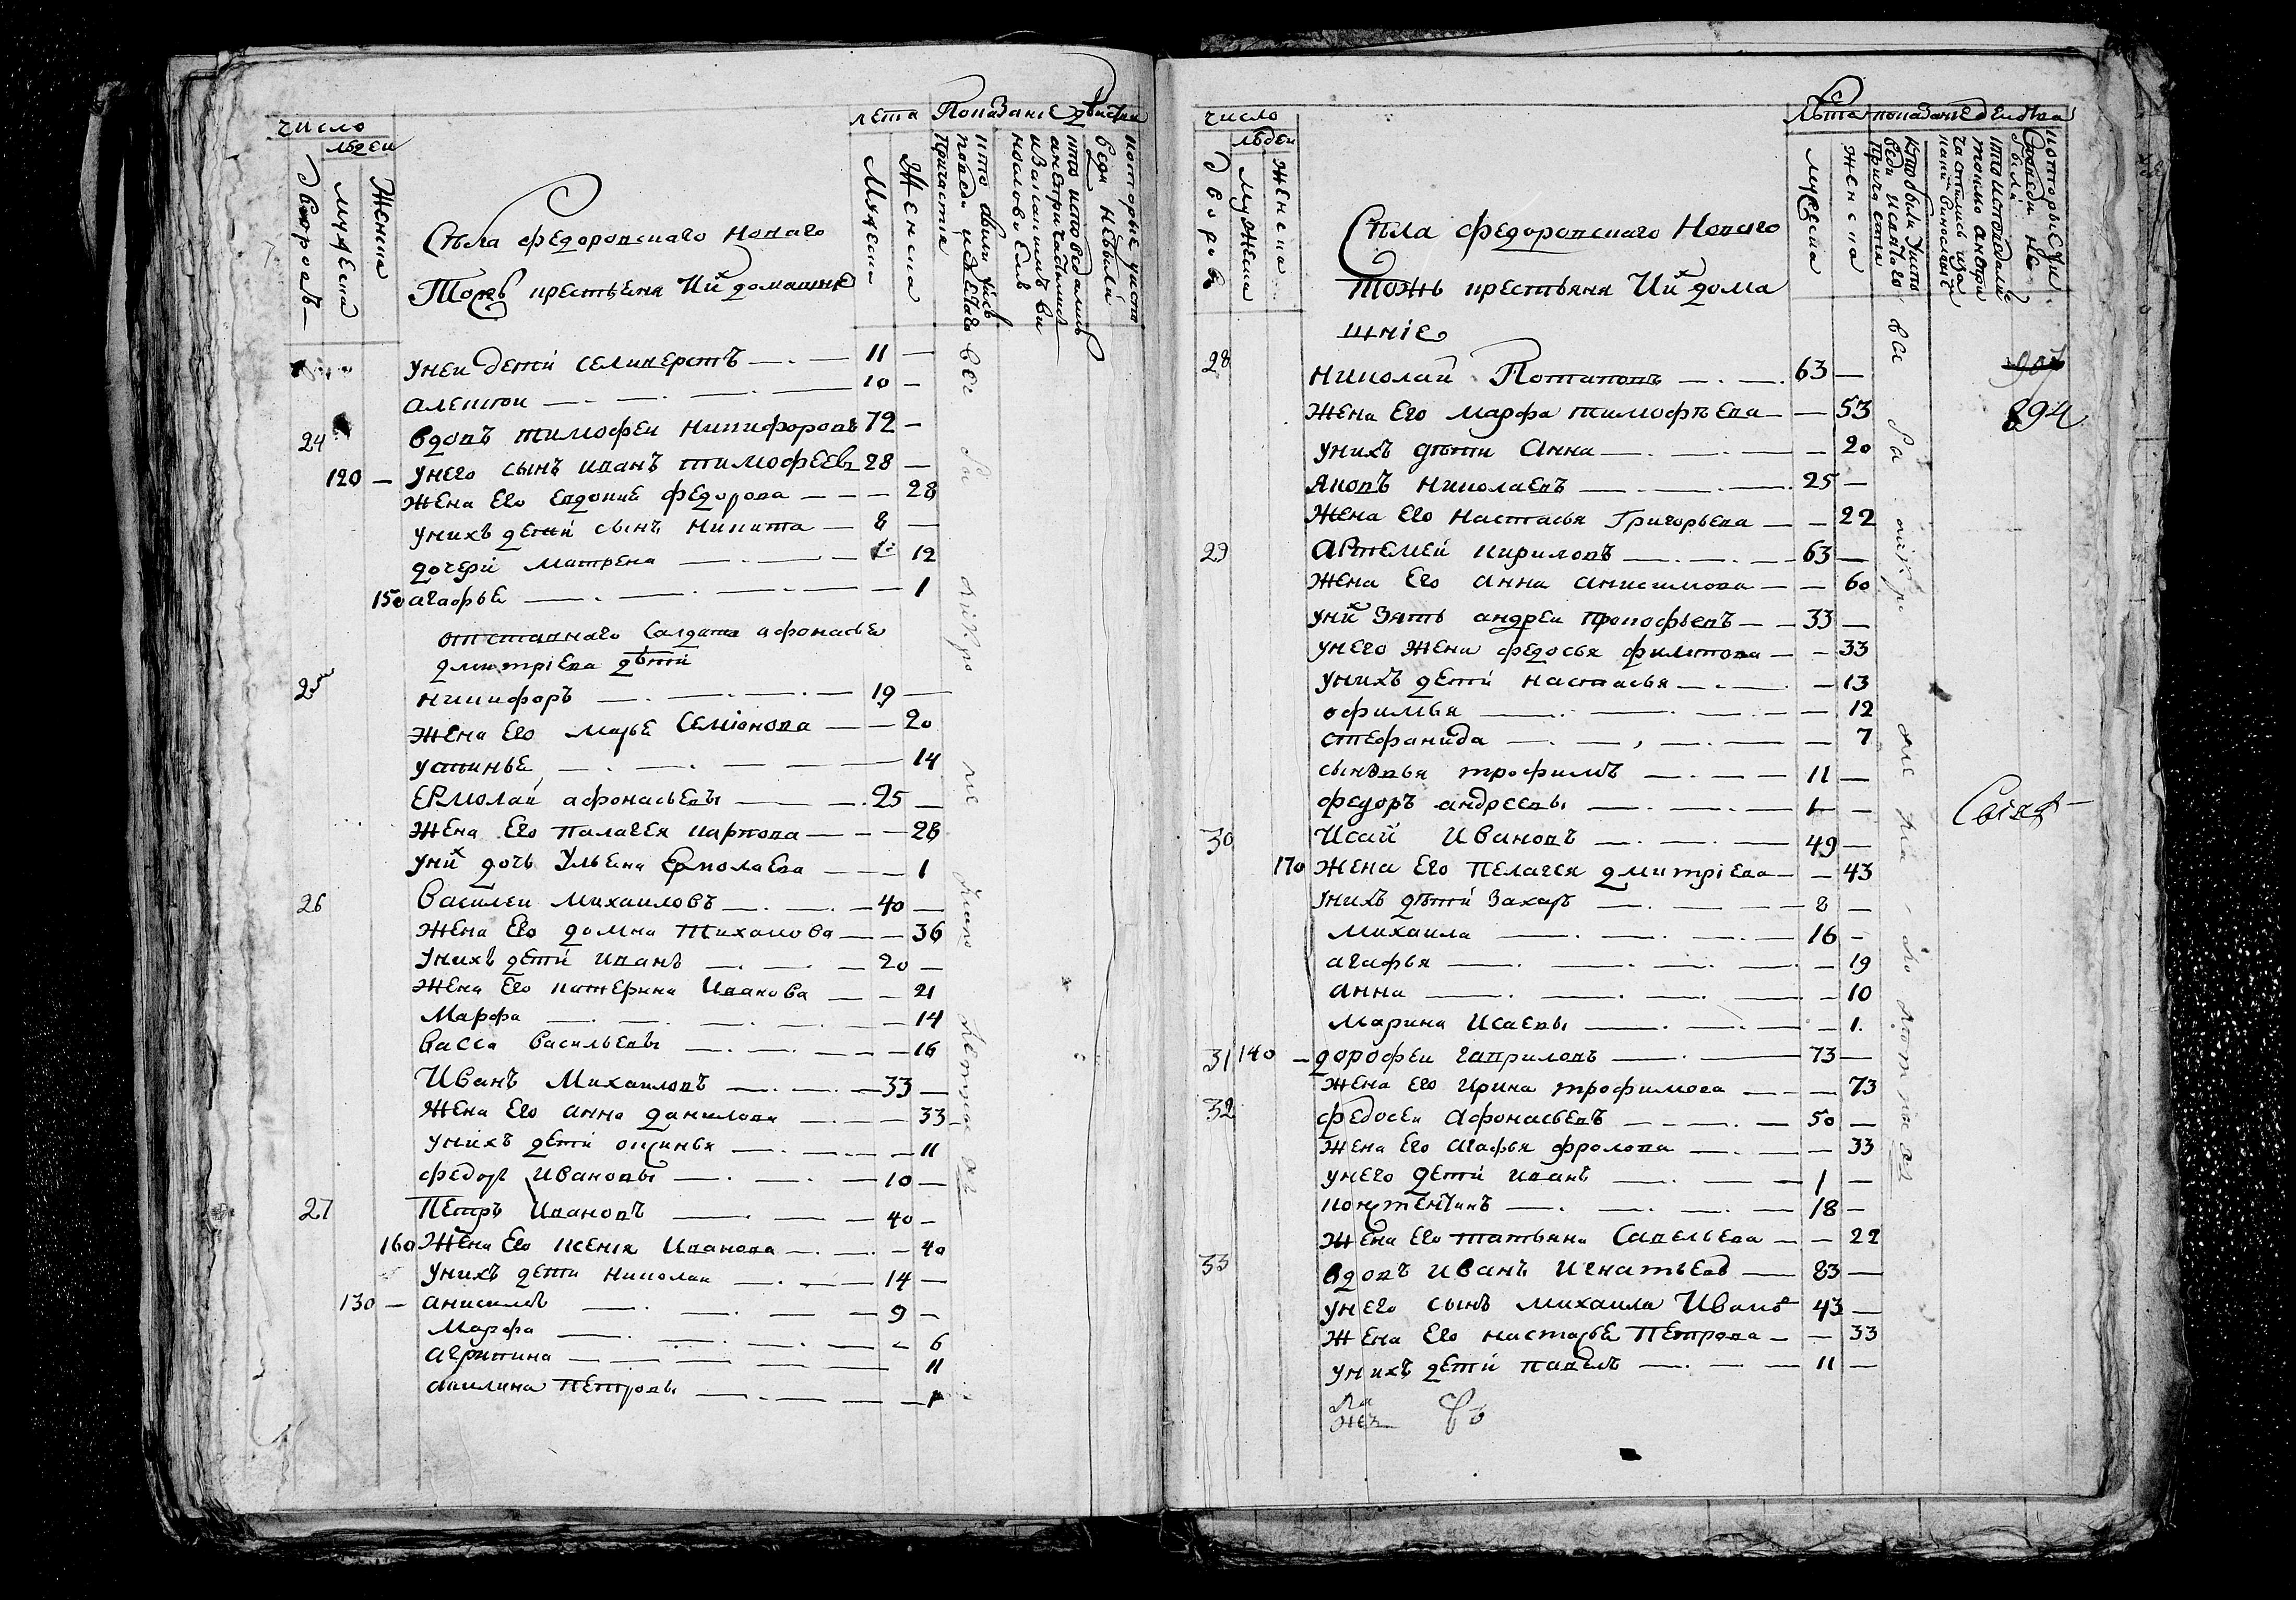 число
лѣта Показание действа
людеи
дворовъ
мужеска
женска
Села федоровскаго новаго
Тожъ крестьеня Ихъ домашние
мужеска
женска
которые у исповеди небыли
унеи дети селиверстъ 11
алектои 10
24 вдовъ тимофеи никифоровъ 72
120 унего сынъ иванъ тимофеевъ 28
жена его евдокие федорова 28
унихъ дети сынъ никита 8
дочери матрена 12
150 агафье 1
отставнаго салдата афонасье
дмитриева дѣти
25 никифоръ 19
жена его марье семионова 20
устинье 14
ермолаи афонасьевы 25
жена его палагея карпова 28
унихъ дочь ульена ермолаева 1
26 василеи михаиловъ 40
жена его домна тиханова 36
унихъ дети иванъ 20
жена его катерина иванова 21
марфа 14
васса васильевы 16
иванъ михаиловъ 33
жена его анна данилова 33
унихъ дети оксинья 11
федоръ ивановы 10
27 петръ ивановъ 40
160 жена его ксения иванова 40
унихъ дети николаи 14
130 анисимъ 9
марфа 6
агрипина 11
акилина петровы 1
число
лѣта показание действа
людеи
дворовъ
мужеска
женска
Села федоровскаго Новаго
тожъ крестьяня Ихъ дома
шние
мужеска
женска
28 николаи Потаповъ 63
904
жена его марфа тимофѣева 53
894
унихъ дѣти анна 20
яковъ николаевъ 25
жена его настасья григорьева 22
29 артемеи кириловъ 63
жена его анна анисимова 60
унихъ зять андреи прокофьевъ 33
унего жена федосья филипова 33
унихъ дети настасья 13
офимья 12
стефанида 7
сыновья трофимъ 11
федоръ андреевы 1
30 Исаи Ивановъ 49
170 жена его пелагея дмитриева 43
унихъ дѣти захаръ 8
михаила 16
агафья 19
анна 10
марина исаевы 1
31 140 дорофеи гавриловъ 73
жена его ирина трофимова 73
32 федосеи афонасьевъ 50
жена его агафья фролова 33
унего дети иванъ 1
констентинъ 18
жена его татьяна савельева 22
33 вдовъ иванъ игнатьевъ 83
унего сынъ михаила Ивановъ 43
жена его настасье петрова 33
унихъ дети павелъ 11